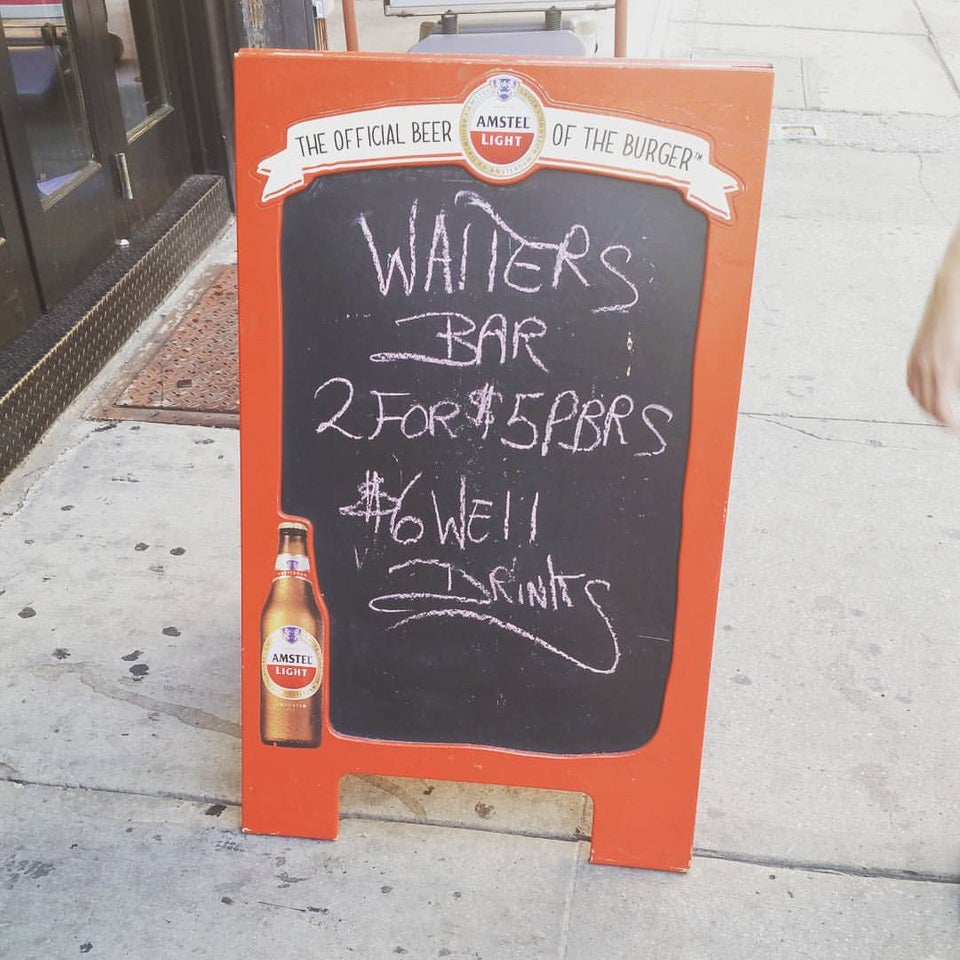 THE OFFICIAL BEER AMSTEL LIGHT OF THE BURGER™
WAITERS
BAR
2 FOR $5 PBRS
$6 WEll
DRINKS
AMSTEL
LIGHT